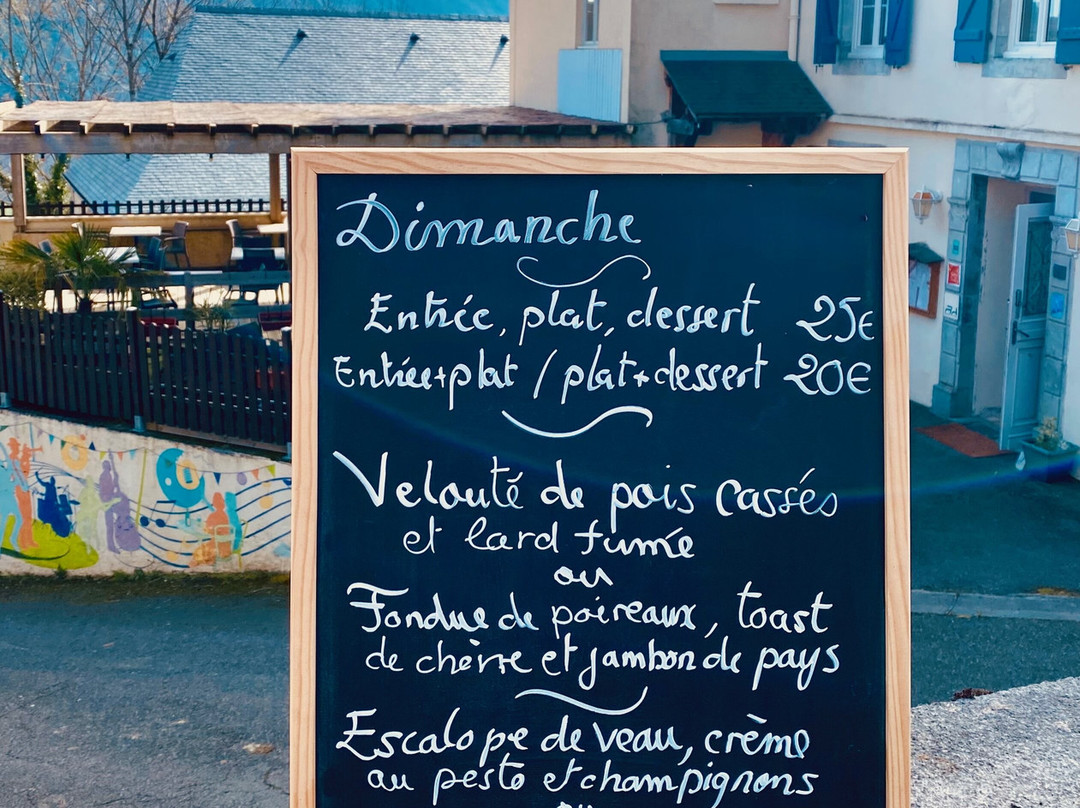 Dimanche
Entrée, plat, dessert 25€
Entrée+plat / plat+dessert 20€
Velouté de pois cassés
et lard fumé
ou
Fondue de poireaux, toast
de chèvre et jambon de pays
Escalope de veau, crème
au pesto et champignons
ou